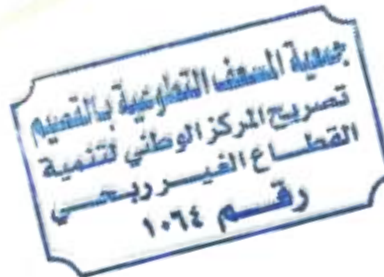 جمعية المسعف التطوعية بالقصيم
تصريح المركز الوطني لتنمية
القطاع الغير ربحي
رقم ١٠٦٤